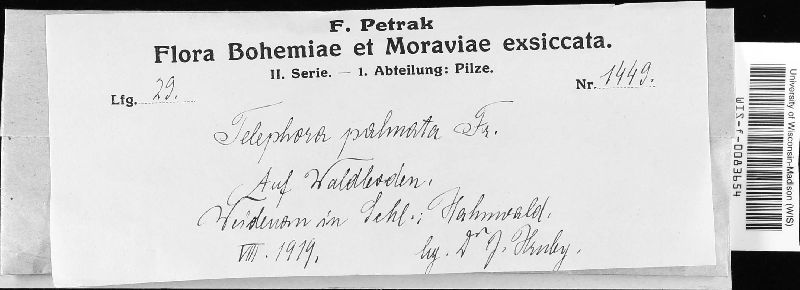 F. Petrak
Flora Bohemiae et Moraviae exsiccata.
II. Serie. — 1. Abteilung: Pilze.
Lfg. 29. Nr. 1449.
Telephora palmata Fr.
Auf Waldboden.
Weidenau in Schl.: Hahnwald.
VIII. 1919. lg. Dr J. Hruby.
University of Wisconsin-Madison (WIS)
WIS-f-0083654